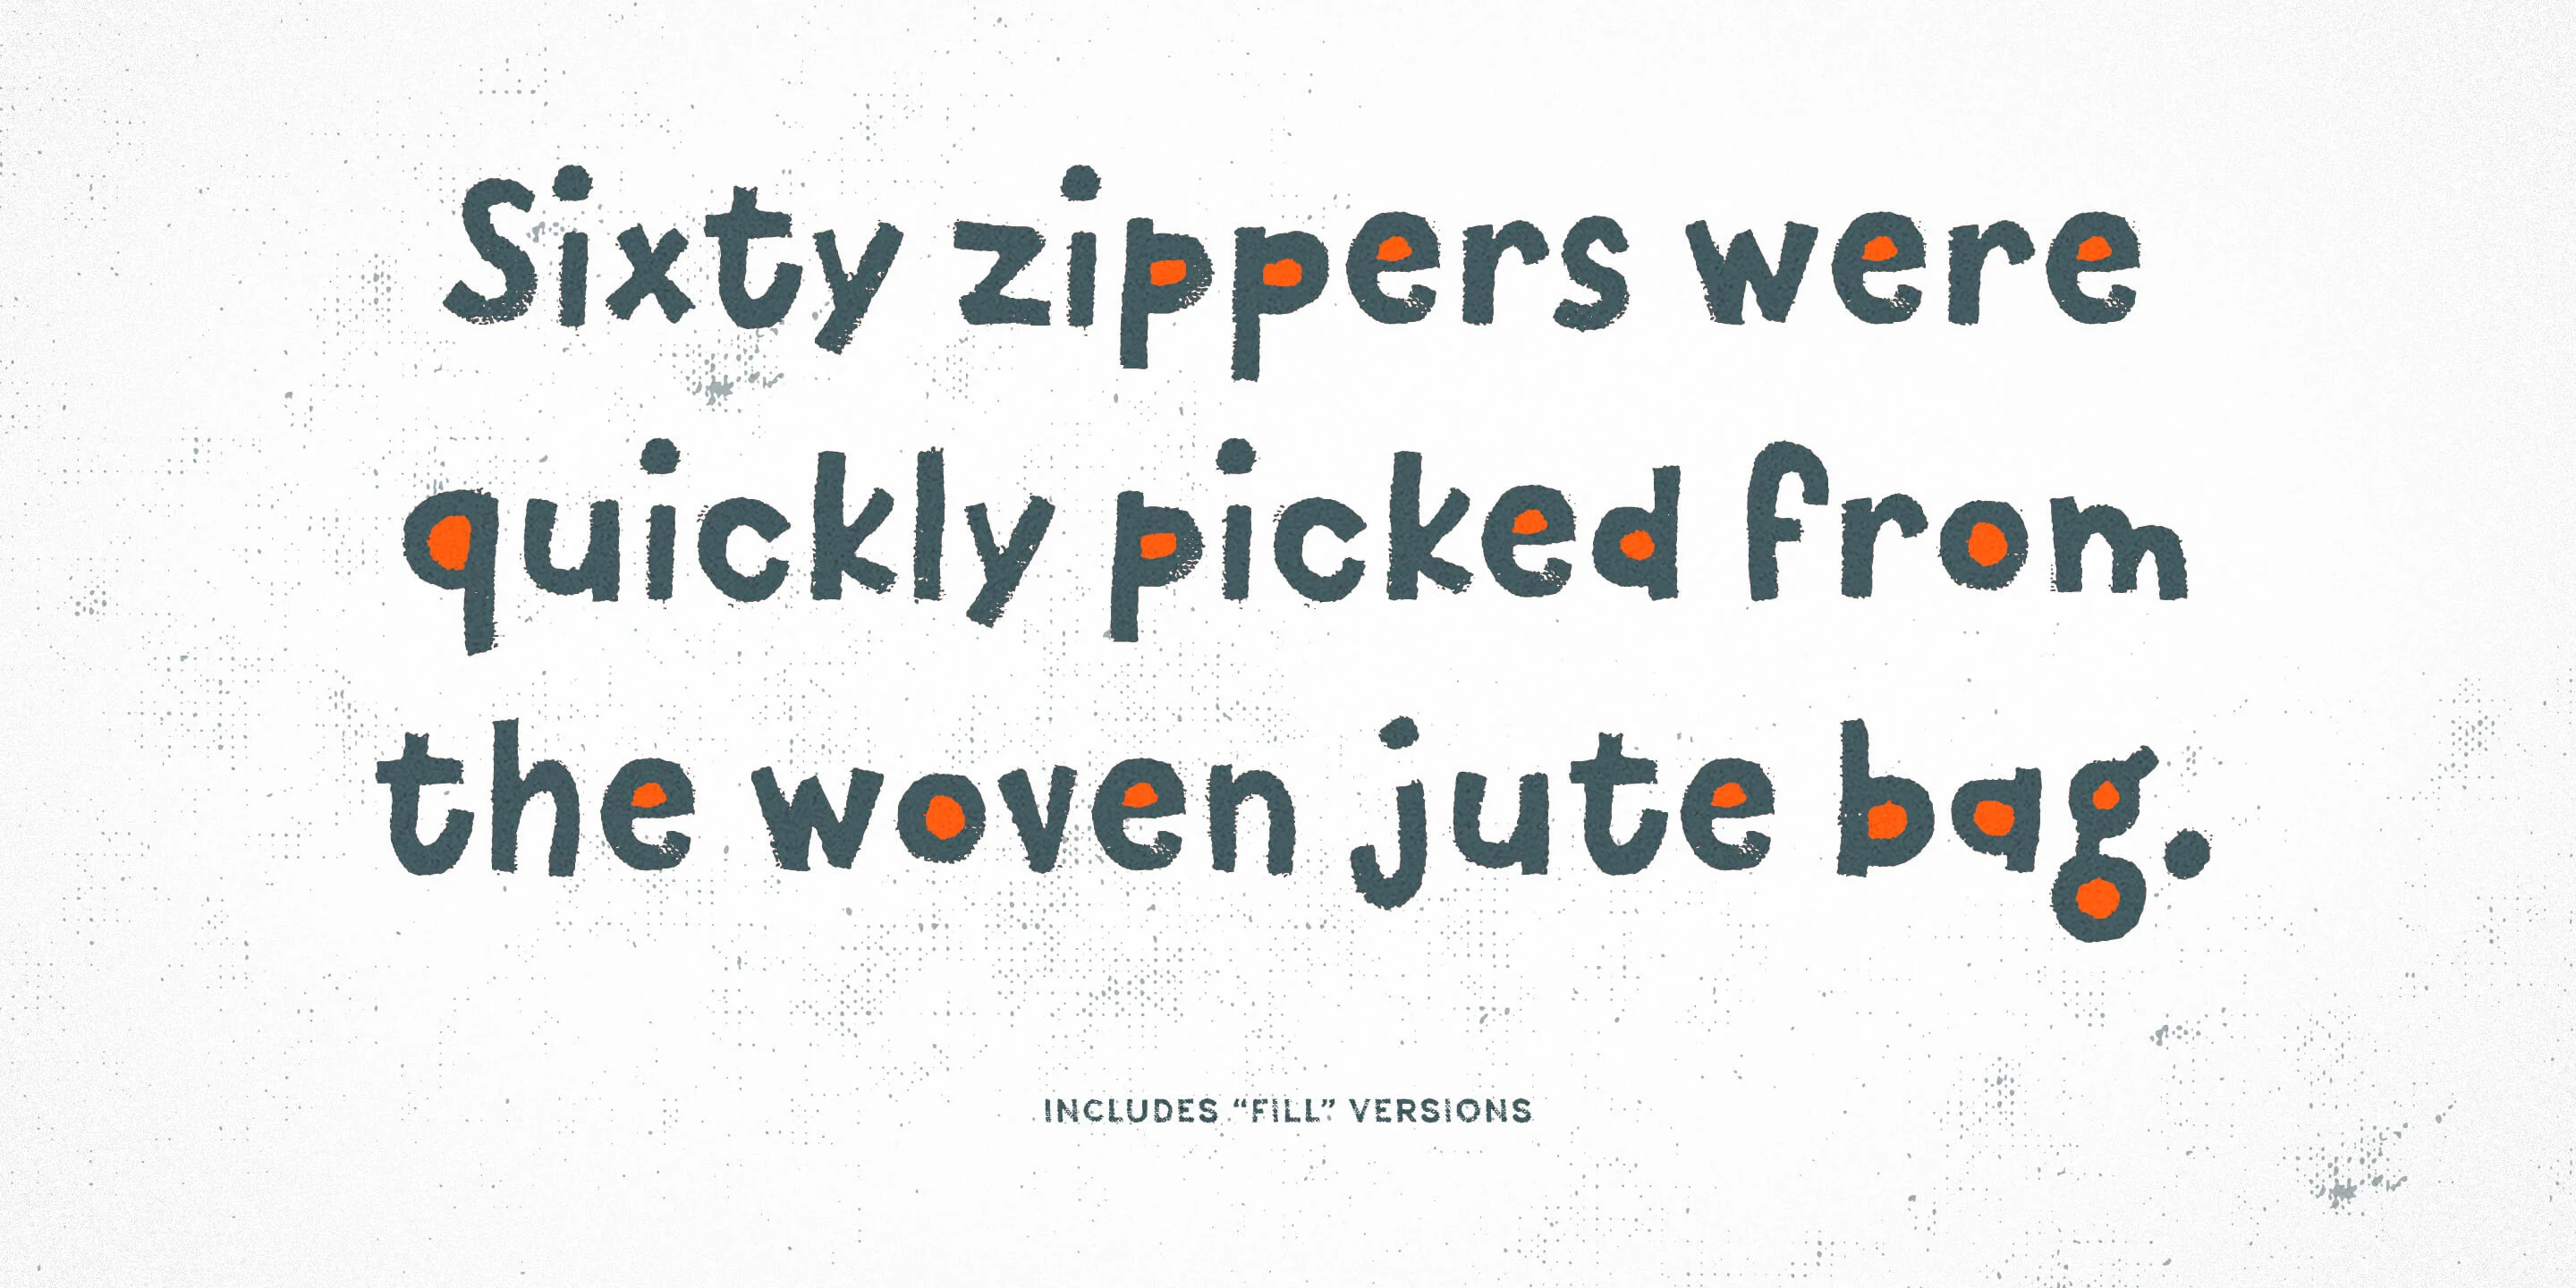 Sixty zippers were
quickly picked from
the woven jute bag.
INCLUDES “FILL” VERSIONS